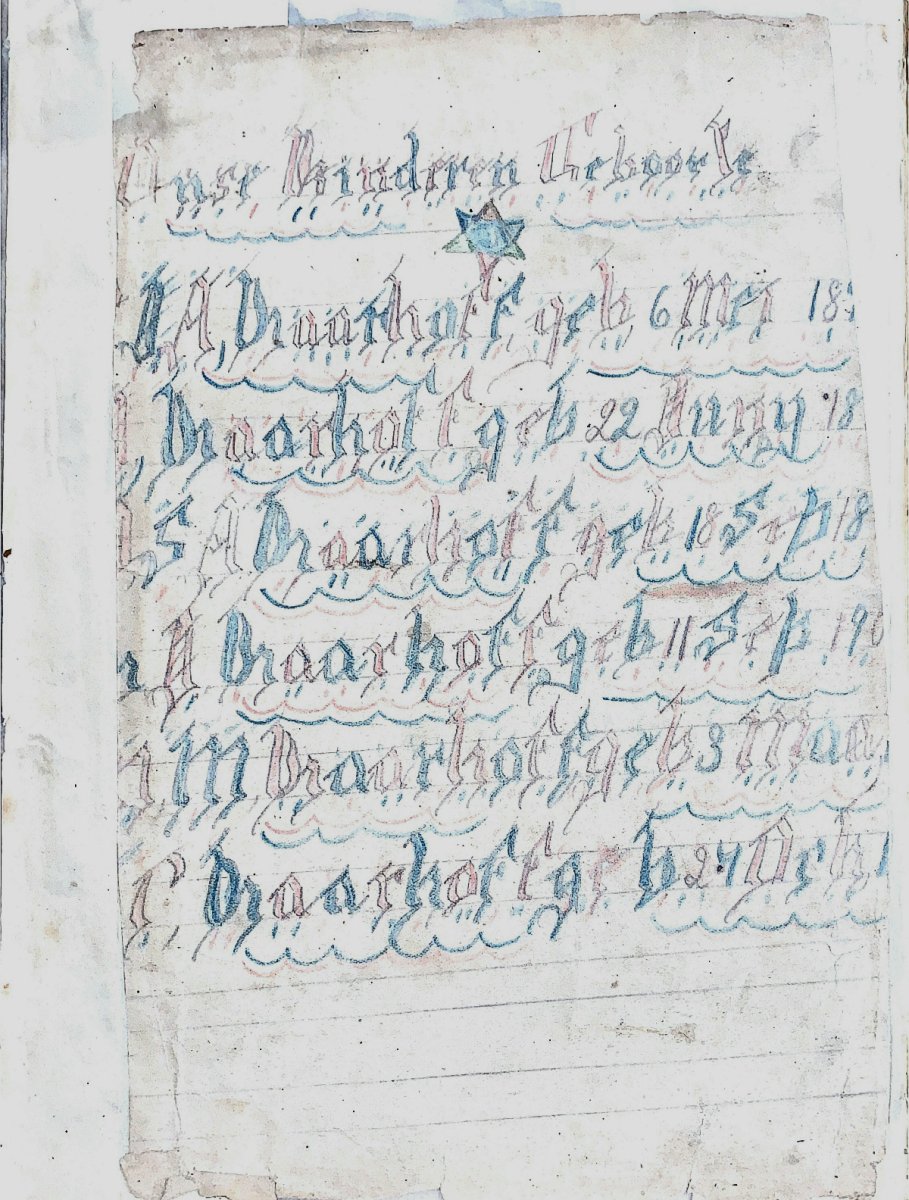 Onse Kinderen Geboorte
A Draarhoff geb 6 Mei 18
Draarhoff geb 22 Juny 18
S A Draarhoff geb 18 Sep 18
A Draarhoff geb 11 Sep 190
M Draarhoff geb 3 Maa
P Draarhoff geb 24 Feb 1